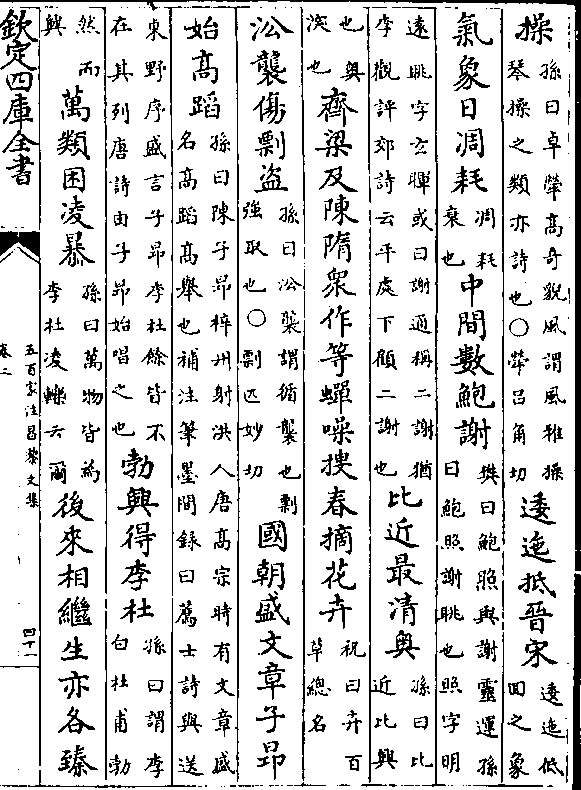 操孫曰卓犖髙奇貌風謂風雅操
琴操之類亦詩也○犖吕角切逶迤抵晉宋逶迤低
囬之象
氣象日凋耗凋耗
衰也中間數鮑謝樊曰鮑照與謝靈運孫
曰鮑照謝朓也照字明
遠朓字玄暉或曰謝通稱二謝猶
李觀評郊詩云平處下顧二謝也比近最清奥孫曰比
近比興
也奥
深也齊梁及陳隋衆作等蟬噪搜春摘花卉祝曰卉百
草總名
沿襲傷剽盗孫曰沿襲謂循襲也剽
強取也○剽匹妙切國朝盛文章子昻
始髙蹈孫曰陳子昻梓州射洪人唐髙宗時有文章盛
名髙蹈髙舉也補注筆墨間録曰薦士詩與送
東野序盛言子昻李杜餘皆不
在其列唐詩由子昻始唱之也勃興得李杜孫曰謂李
白杜甫勃
然而
興萬類困凌暴孫曰萬物皆為
李杜凌轢云爾後來相繼生亦各臻
欽定四庫全書
五百家注昌黎文集
卷二
四十一